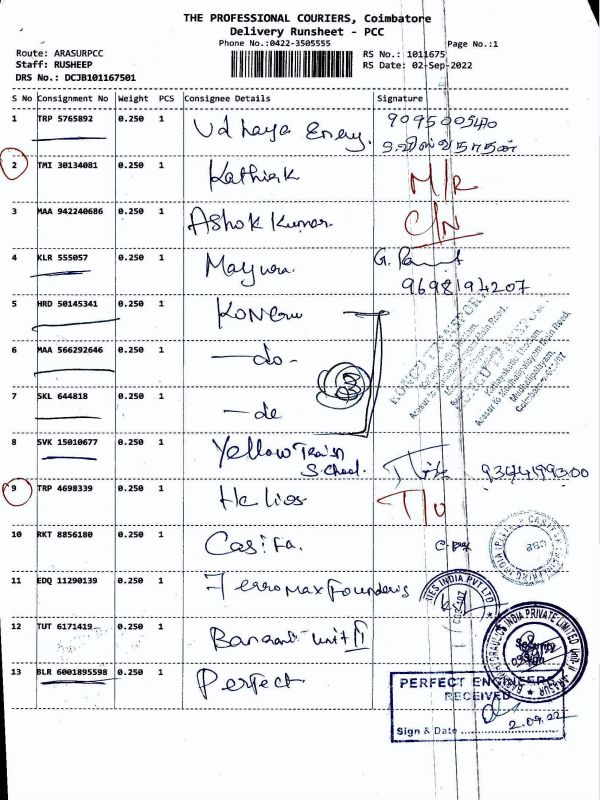 THE PROFESSIONAL COURIERS, Coimbatore
Delivery Runsheet - PCC
Phone No.:0422-3505555
Page No.:1
Route: ARASURPCC
Staff: RUSHEEP
DRS No.: DCJB101167501
RS No.: 1011675
RS Date: 02-Sep-2022
S No Consignment No Weight PCS Consignee Details Signature
1 TRP 5765892 0.250 1 Udhaya Energy. 9095005410
2 TMI 30134081 0.250 1 Kathirk M/R
3 MAA 942240686 0.250 1 Ashok Kumar. C/N
4 KLR 555057 0.250 1 Mayura. G.
9698194207
5 HRD 50145341 0.250 1
6 MAA 566292646 0.250 1 -do-
7 SKL 644818 0.250 1 -do
8 SVK 15010677 0.250 1 Yellow Train
School.
9 TRP 4698339 0.250 1 Helios T/U
10 RKT 8856180 0.250 1
11 EDQ 11290139 0.250 1 Ferromax Founders
RIES INDIA PVT LTD
12 TUT 6171419 0.250 1 Unit II
HYDRAULICS INDIA PRIVATE LIMITED
13 BLR 6001895598 0.250 1 Perfect
PERFECT ENGINEERS
RECEIVED
2.09.22
Sign & Date